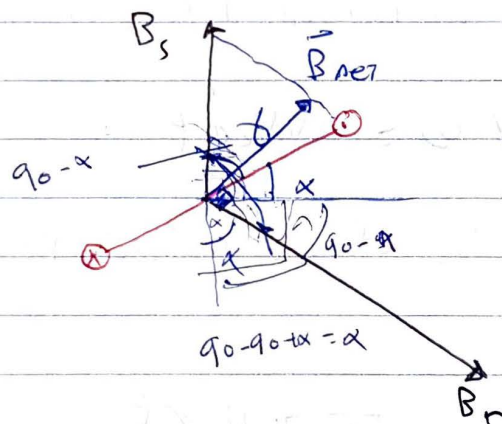 B_s
B⃗ net
90-α
γ
α
α
α
90-α
90-90+α=α
B_r